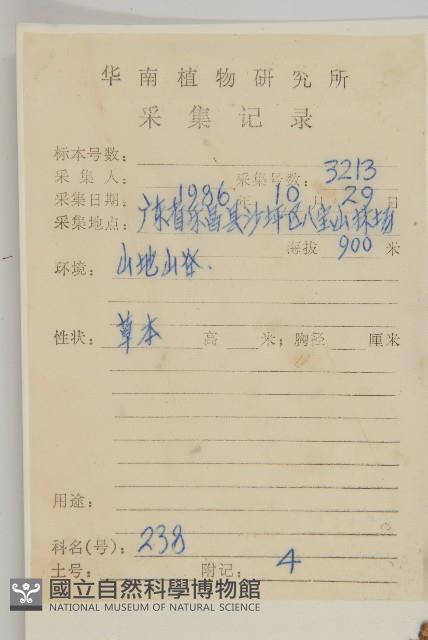 华南植物研究所
采集记录
标本号数：
采集人： 采集号数：3213
采集日期：1986年10月29日
采集地点：广东省乐昌县沙坪区八宝山林场
海拔 900 米
环境：山地山谷.
性状：草本 高 米；胸径 厘米
用途：
科名(号)：238
土号： 附记：4
國立自然科學博物館
NATIONAL MUSEUM OF NATURAL SCIENCE